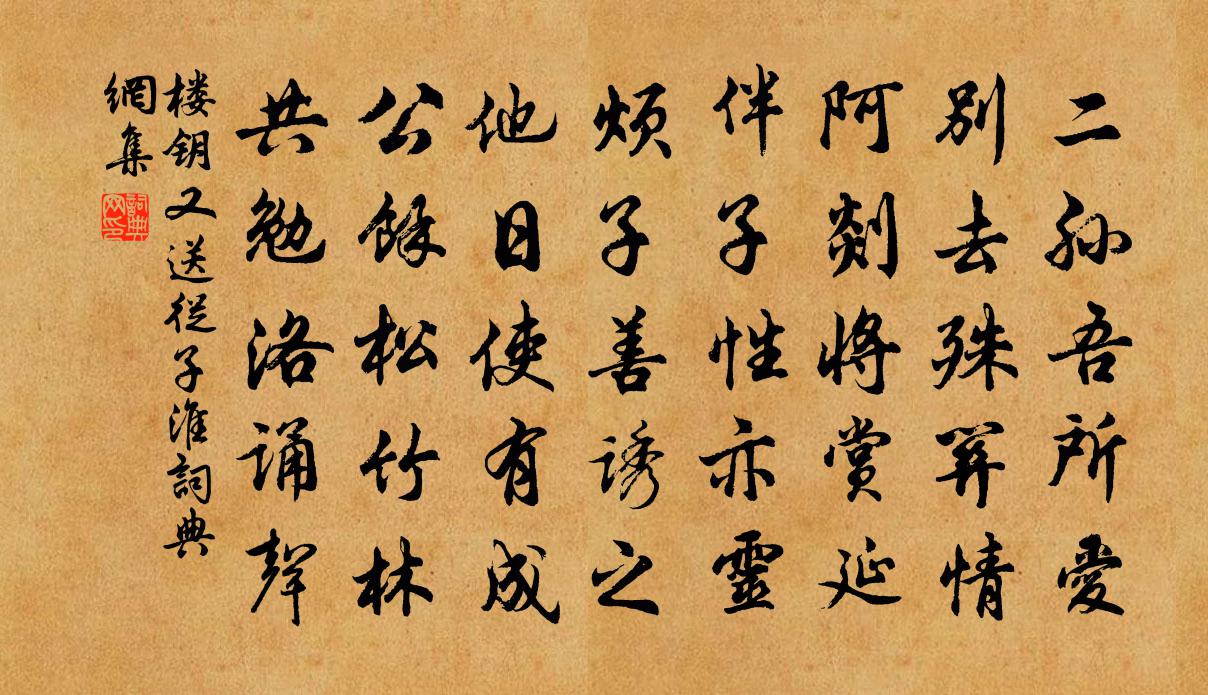 二孙吾所愛
别去殊関情
阿剡将賞延
伴子性亦靈
烦子善诱之
他日使有成
公餘松竹林
共勉洛诵聲
楼钥又送從子淮詞典
網集
詞典
网印